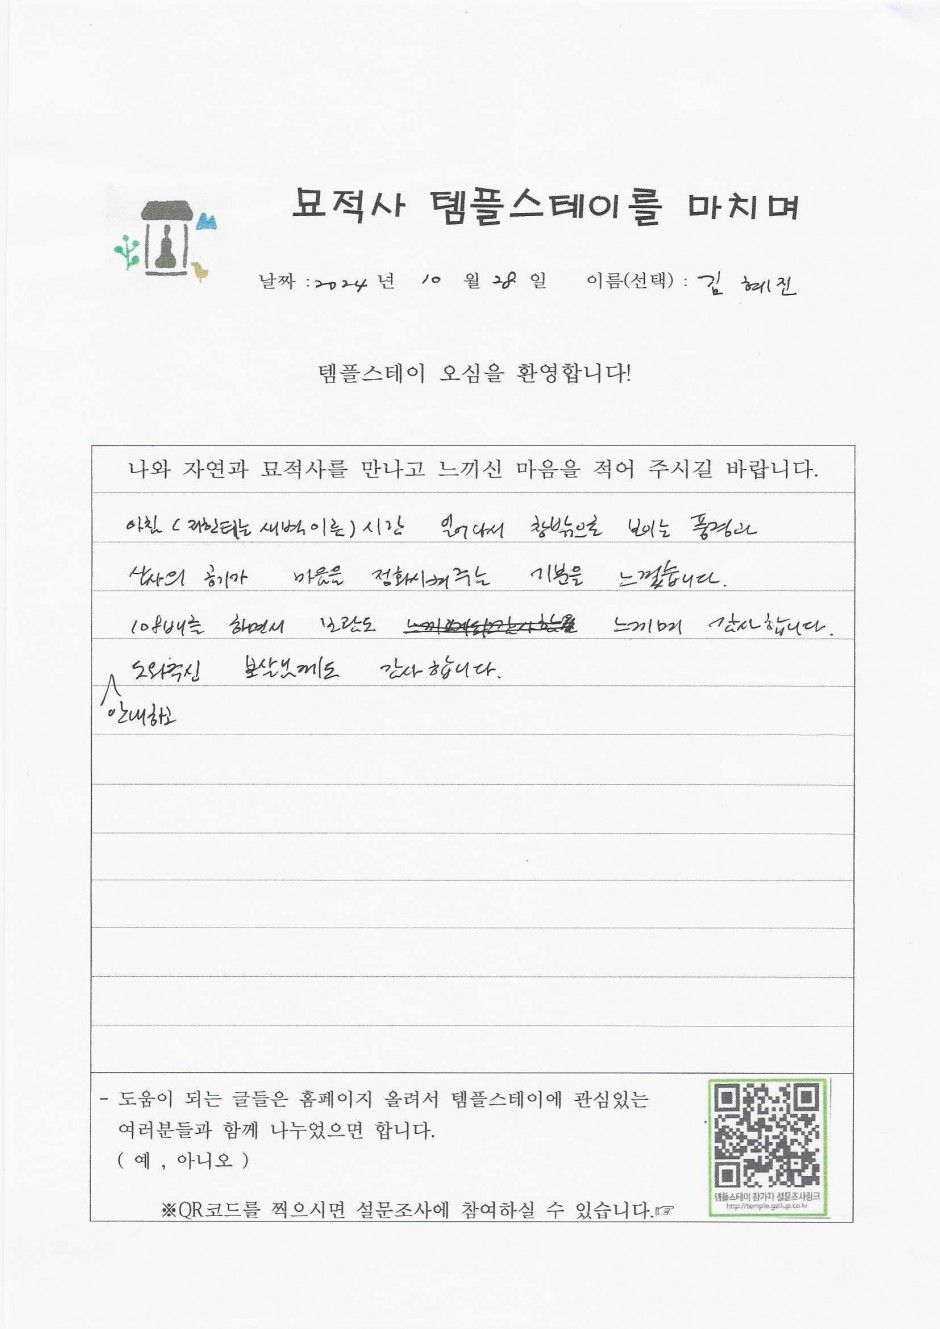 묘적사 템플스테이를 마치며
날짜 : 2024 년 10 월 28 일 이름(선택) : 김 혜진
템플스테이 오심을 환영합니다!
나와 자연과 묘적사를 만나고 느끼신 마음을 적어 주시길 바랍니다.
아침 (저한테는 새벽이른) 시간 일어나서 창밖으로 보이는 풍경과
산사의 공기가 마음을 정화시켜주는 기분을 느꼈습니다.
108배를 하면서 보람도 느끼며 감사합니다.
도와주신 보살님께도 감사합니다.
안내하고
- 도움이 되는 글들은 홈페이지 올려서 템플스테이에 관심있는
여러분들과 함께 나누었으면 합니다.
( 예 , 아니오 )
※QR코드를 찍으시면 설문조사에 참여하실 수 있습니다.☞
템플스테이 참가자 설문조사링크
http://temple.gallup.co.kr